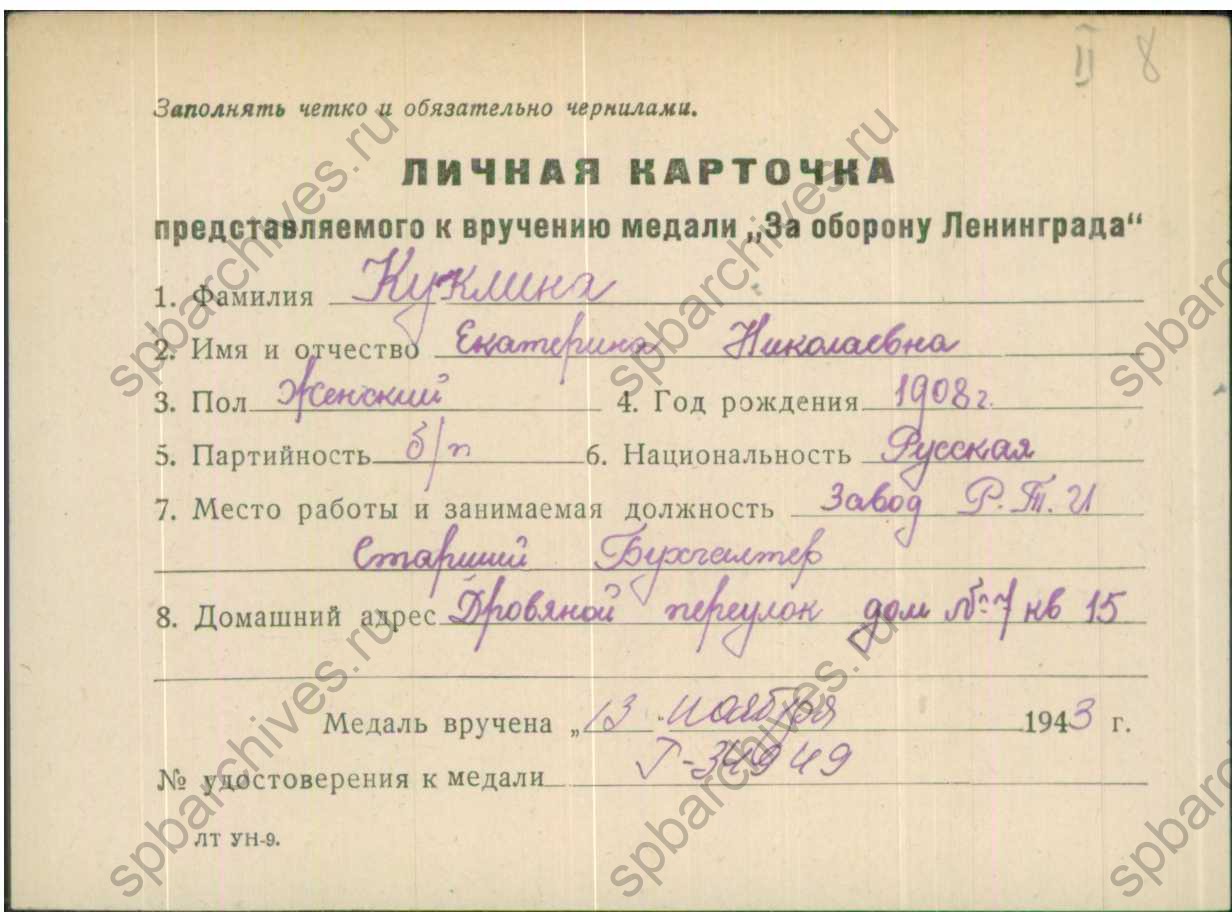 II 8
Заполнять четко и обязательно чернилами.
ЛИЧНАЯ КАРТОЧКА
представляемого к вручению медали „За оборону Ленинграда“
1. Фамилия Куклина
2. Имя и отчество Екатерина Николаевна
3. Пол Женский 4. Год рождения 1908 г.
5. Партийность б/п 6. Национальность Русская
7. Место работы и занимаемая должность Завод Р.Т.И
Старший Бухгалтер
8. Домашний адрес Дровяной переулок дом №7 кв 15
Медаль вручена „13 ноября 1943 г.
№ удостоверения к медали Г-34949
ЛТ УН-9.
spbarchives.ru
spbarchives.ru
spbarchives.ru
spbarchives.ru